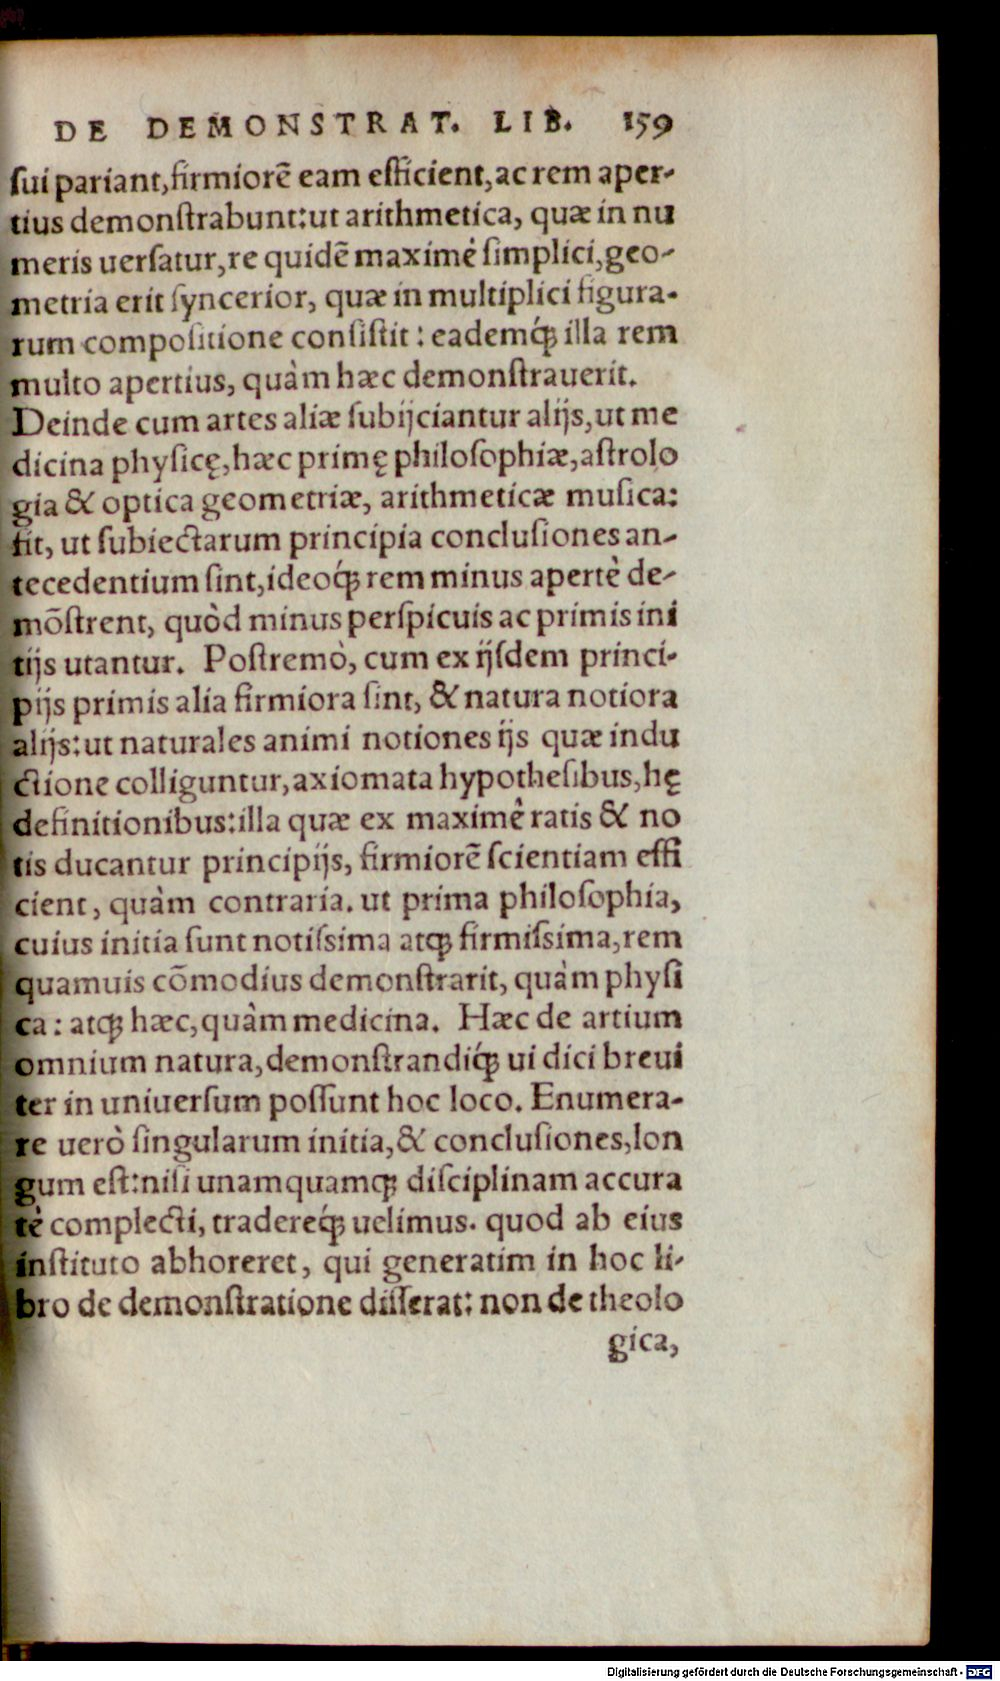 DE DEMONSTRAT. LIB. 159
ſui pariant, firmiorē eam efficient, ac rem aper-
tius demonſtrabunt: ut arithmetica, quæ in nu
meris uerſatur, re quidē maximè ſimplici, geo-
metria erit ſyncerior, quæ in multiplici figura-
rum compoſitione conſiſtit: eademq́ꝫ illa rem
multo apertius, quàm hæc demonſtrauerit.
Deinde cum artes aliæ ſubijciantur alijs, ut me
dicina phyſicę, hæc primę philoſophiæ, aſtrolo
gia & optica geometriæ, arithmeticæ muſica:
fit, ut ſubiectarum principia concluſiones an-
tecedentium ſint, ideoq́ꝫ rem minus apertè de-
mōſtrent, quòd minus perſpicuis ac primis ini
tijs utantur. Poſtremò, cum ex ijſdem princi-
pijs primis alia firmiora ſint, & natura notiora
alijs: ut naturales animi notiones ijs quæ indu
ctione colliguntur, axiomata hypotheſibus, hę
definitionibus: illa quæ ex maximè ratis & no
tis ducantur principijs, firmiorē ſcientiam effi
cient, quàm contraria. ut prima philoſophia,
cuius initia ſunt notiſsima atqꝫ firmiſsima, rem
quamuis cōmodius demonſtrarit, quàm phyſi
ca: atqꝫ hæc, quàm medicina. Hæc de artium
omnium natura, demonſtrandiq́ꝫ ui dici breui
ter in uniuerſum poſſunt hoc loco. Enumera-
re uerò ſingularum initia, & concluſiones, lon
gum eſt: niſi unamquamqꝫ diſciplinam accura
tè complecti, tradereq́ꝫ uelimus. quod ab eius
inſtituto abhoreret, qui generatim in hoc li-
bro de demonſtratione diſſerat: non de theolo
gica,
Digitalisierung gefördert durch die Deutsche Forschungsgemeinschaft - DFG